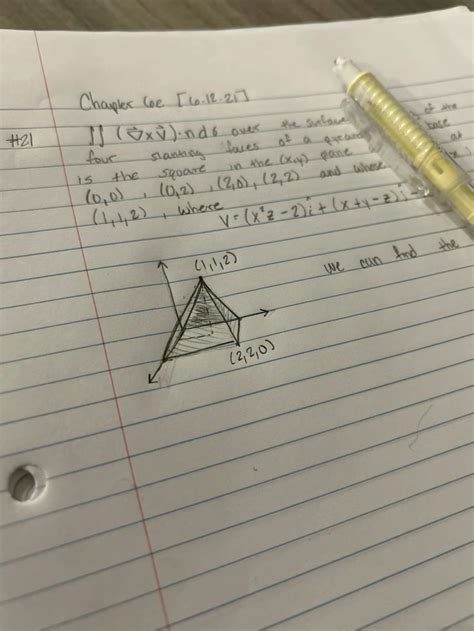 Chapter 6e [6.12.21]
#21 ∬ (∇⃗xV⃗)·n dσ over the surface of the
four slanting faces of a base
is the square in the (x,y) plane at
(0,0), (0,2), (2,0), (2,2) and where
(1,1,2), where
V=(x²z-2)i+(x+y-z)j
(1,1,2)
we can find the
(2,2,0)